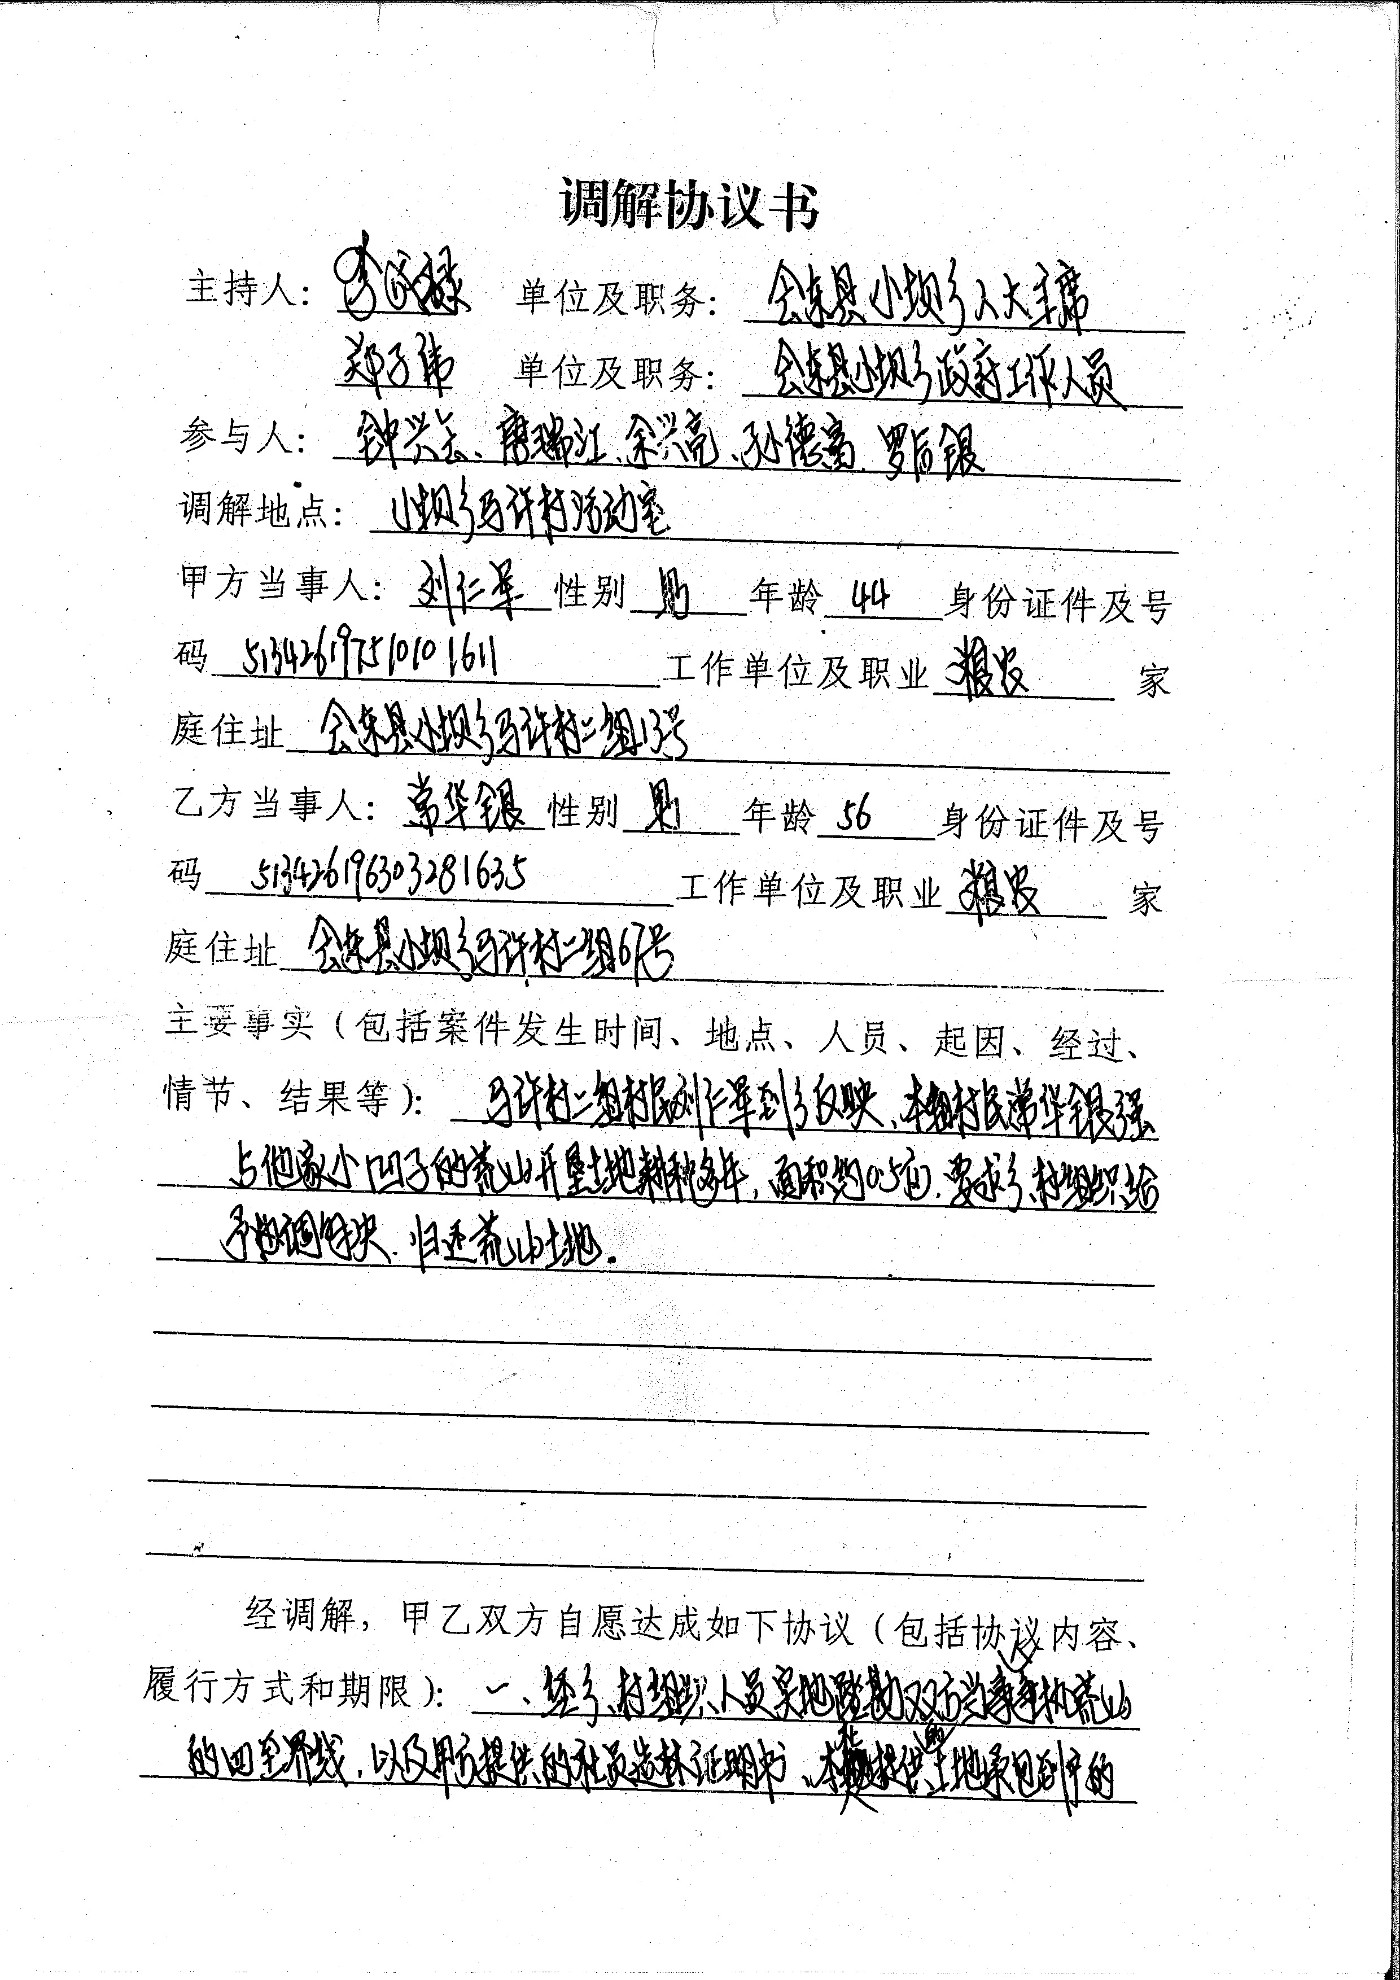 调解协议书
主持人： 李成禄 单位及职务： 会东县小坝乡人大主席
郑子伟 单位及职务： 会东县小坝乡政府工作人员
参与人： 钟兴会、唐瑞江、余兴亮、孙德富、罗后银
调解地点： 小坝乡马许村活动室
甲方当事人： 刘仁军 性别 男 年龄 44 身份证件及号
码 513426197510101611 工作单位及职业 粮农 家
庭住址 会东县小坝乡马许村二组13号
乙方当事人： 常华银 性别 男 年龄 56 身份证件及号
码 513426196303281635 工作单位及职业 粮农 家
庭住址 会东县小坝乡马许村二组67号
主要事实（包括案件发生时间、地点、人员、起因、经过、
情节、结果等）： 马许村二组村民刘仁军到乡反映、本组村民常华银强
占他家小凹子的荒山开垦土地耕种多年，面积约0.5亩，要求乡、村组织给
予协调解决、归还荒山土地。
经调解，甲乙双方自愿达成如下协议（包括协议内容、
履行方式和期限）： 一、经乡、村组织人员实地踏勘双方当事争执荒山
的四至界线，以及甲方提供的社员造林证明书、本提供土地承包到户的